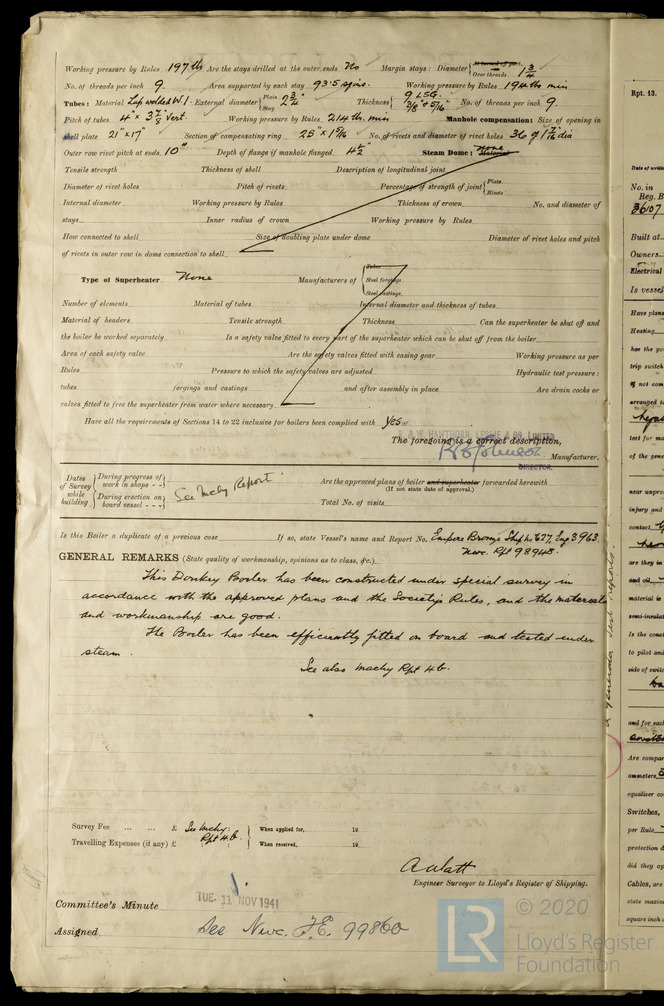 Working pressure by Rules 197 lbs Are the stays drilled at the outer ends No Margin stays: Diameter { At turned off part, or Over threads 1 3/4
No. of threads per inch 9. Area supported by each stay 93.5 sq ins. Working pressure by Rules 194 lbs min
Tubes: Material Lap welded W.I. External diameter { Plain Stay 2 3/4" Thickness { 9 LSG. 3/8" + 5/16" No. of threads per inch 9.
Pitch of tubes 4" x 3 7/8" Vert. Working pressure by Rules 214 lbs. min Manhole compensation: Size of opening in
shell plate 21" x 17" Section of compensating ring 25" x 1 5/16 No. of rivets and diameter of rivet holes 36 of 1 7/16 dia
Outer row rivet pitch at ends 10" Depth of flange if manhole flanged 4 1/2" Steam Dome: None Material
Tensile strength Thickness of shell Description of longitudinal joint
Diameter of rivet holes Pitch of rivets Percentage of strength of joint { Plate Rivets
Internal diameter Working pressure by Rules Thickness of crown No. and diameter of
stays Inner radius of crown Working pressure by Rules
How connected to shell Size of doubling plate under dome Diameter of rivet holes and pitch
of rivets in outer row in dome connection to shell
Type of Superheater None Manufacturers of { Tubes Steel forgings Steel castings
Number of elements Material of tubes Internal diameter and thickness of tubes
Material of headers Tensile strength Thickness Can the superheater be shut off and
the boiler be worked separately Is a safety valve fitted to every part of the superheater which can be shut off from the boiler
Area of each safety valve Are the safety valves fitted with easing gear Working pressure as per
Rules Pressure to which the safety valves are adjusted Hydraulic test pressure:
tubes forgings and castings and after assembly in place Are drain cocks or
valves fitted to free the superheater from water where necessary
Have all the requirements of Sections 14 to 22 inclusive for boilers been complied with Yes
R. & W. HAWTHORN, LESLIE & CO. LIMITED
The foregoing is a correct description,
Manufacturer.
DIRECTOR.
Dates of Survey while building { During progress of work in shops - - During erection on board vessel - - - See Machy Report
Are the approved plans of boiler and superheater forwarded herewith
(If not state date of approval.)
Total No. of visits
Is this Boiler a duplicate of a previous case If so, state Vessel's name and Report No. Empire Bronze Ship No 677, Eng 3963.
Nwc. Rpt 98948.
GENERAL REMARKS (State quality of workmanship, opinions as to class, &c.)
This Donkey Boiler has been constructed under special survey in
accordance with the approved plans and the Society's Rules, and the materials
and workmanship are good.
The Boiler has been efficiently fitted on board and tested under
steam.
See also machy Rpt 4b.
Survey Fee ... ... £ See Machy. Rpt 4b. When applied for, 19
Travelling Expenses (if any) £ When received, 19
A Watt
Engineer Surveyor to Lloyd's Register of Shipping.
Committee's Minute TUE. 11 NOV 1941
Assigned See Nwc. F.E. 99860
LR © 2020
Lloyd's Register
Foundation
Rpt. 13.
Date of writ
No. in
Reg. B
36107
Built at
Owners
Electrical
Is vessel
Have plans
Heating
has the go
trip switch
if not com
arranged to
test for ma
of the gene
near unpro
injury and
contact
are they in
and oil
material is
semi-insulat
Is the const
to pilot and
side of switc
and for eac
Are compar
ammeters
equaliser co
Switches,
per Rule
protection d
did they op
Cables, are
state maxim
square inch o